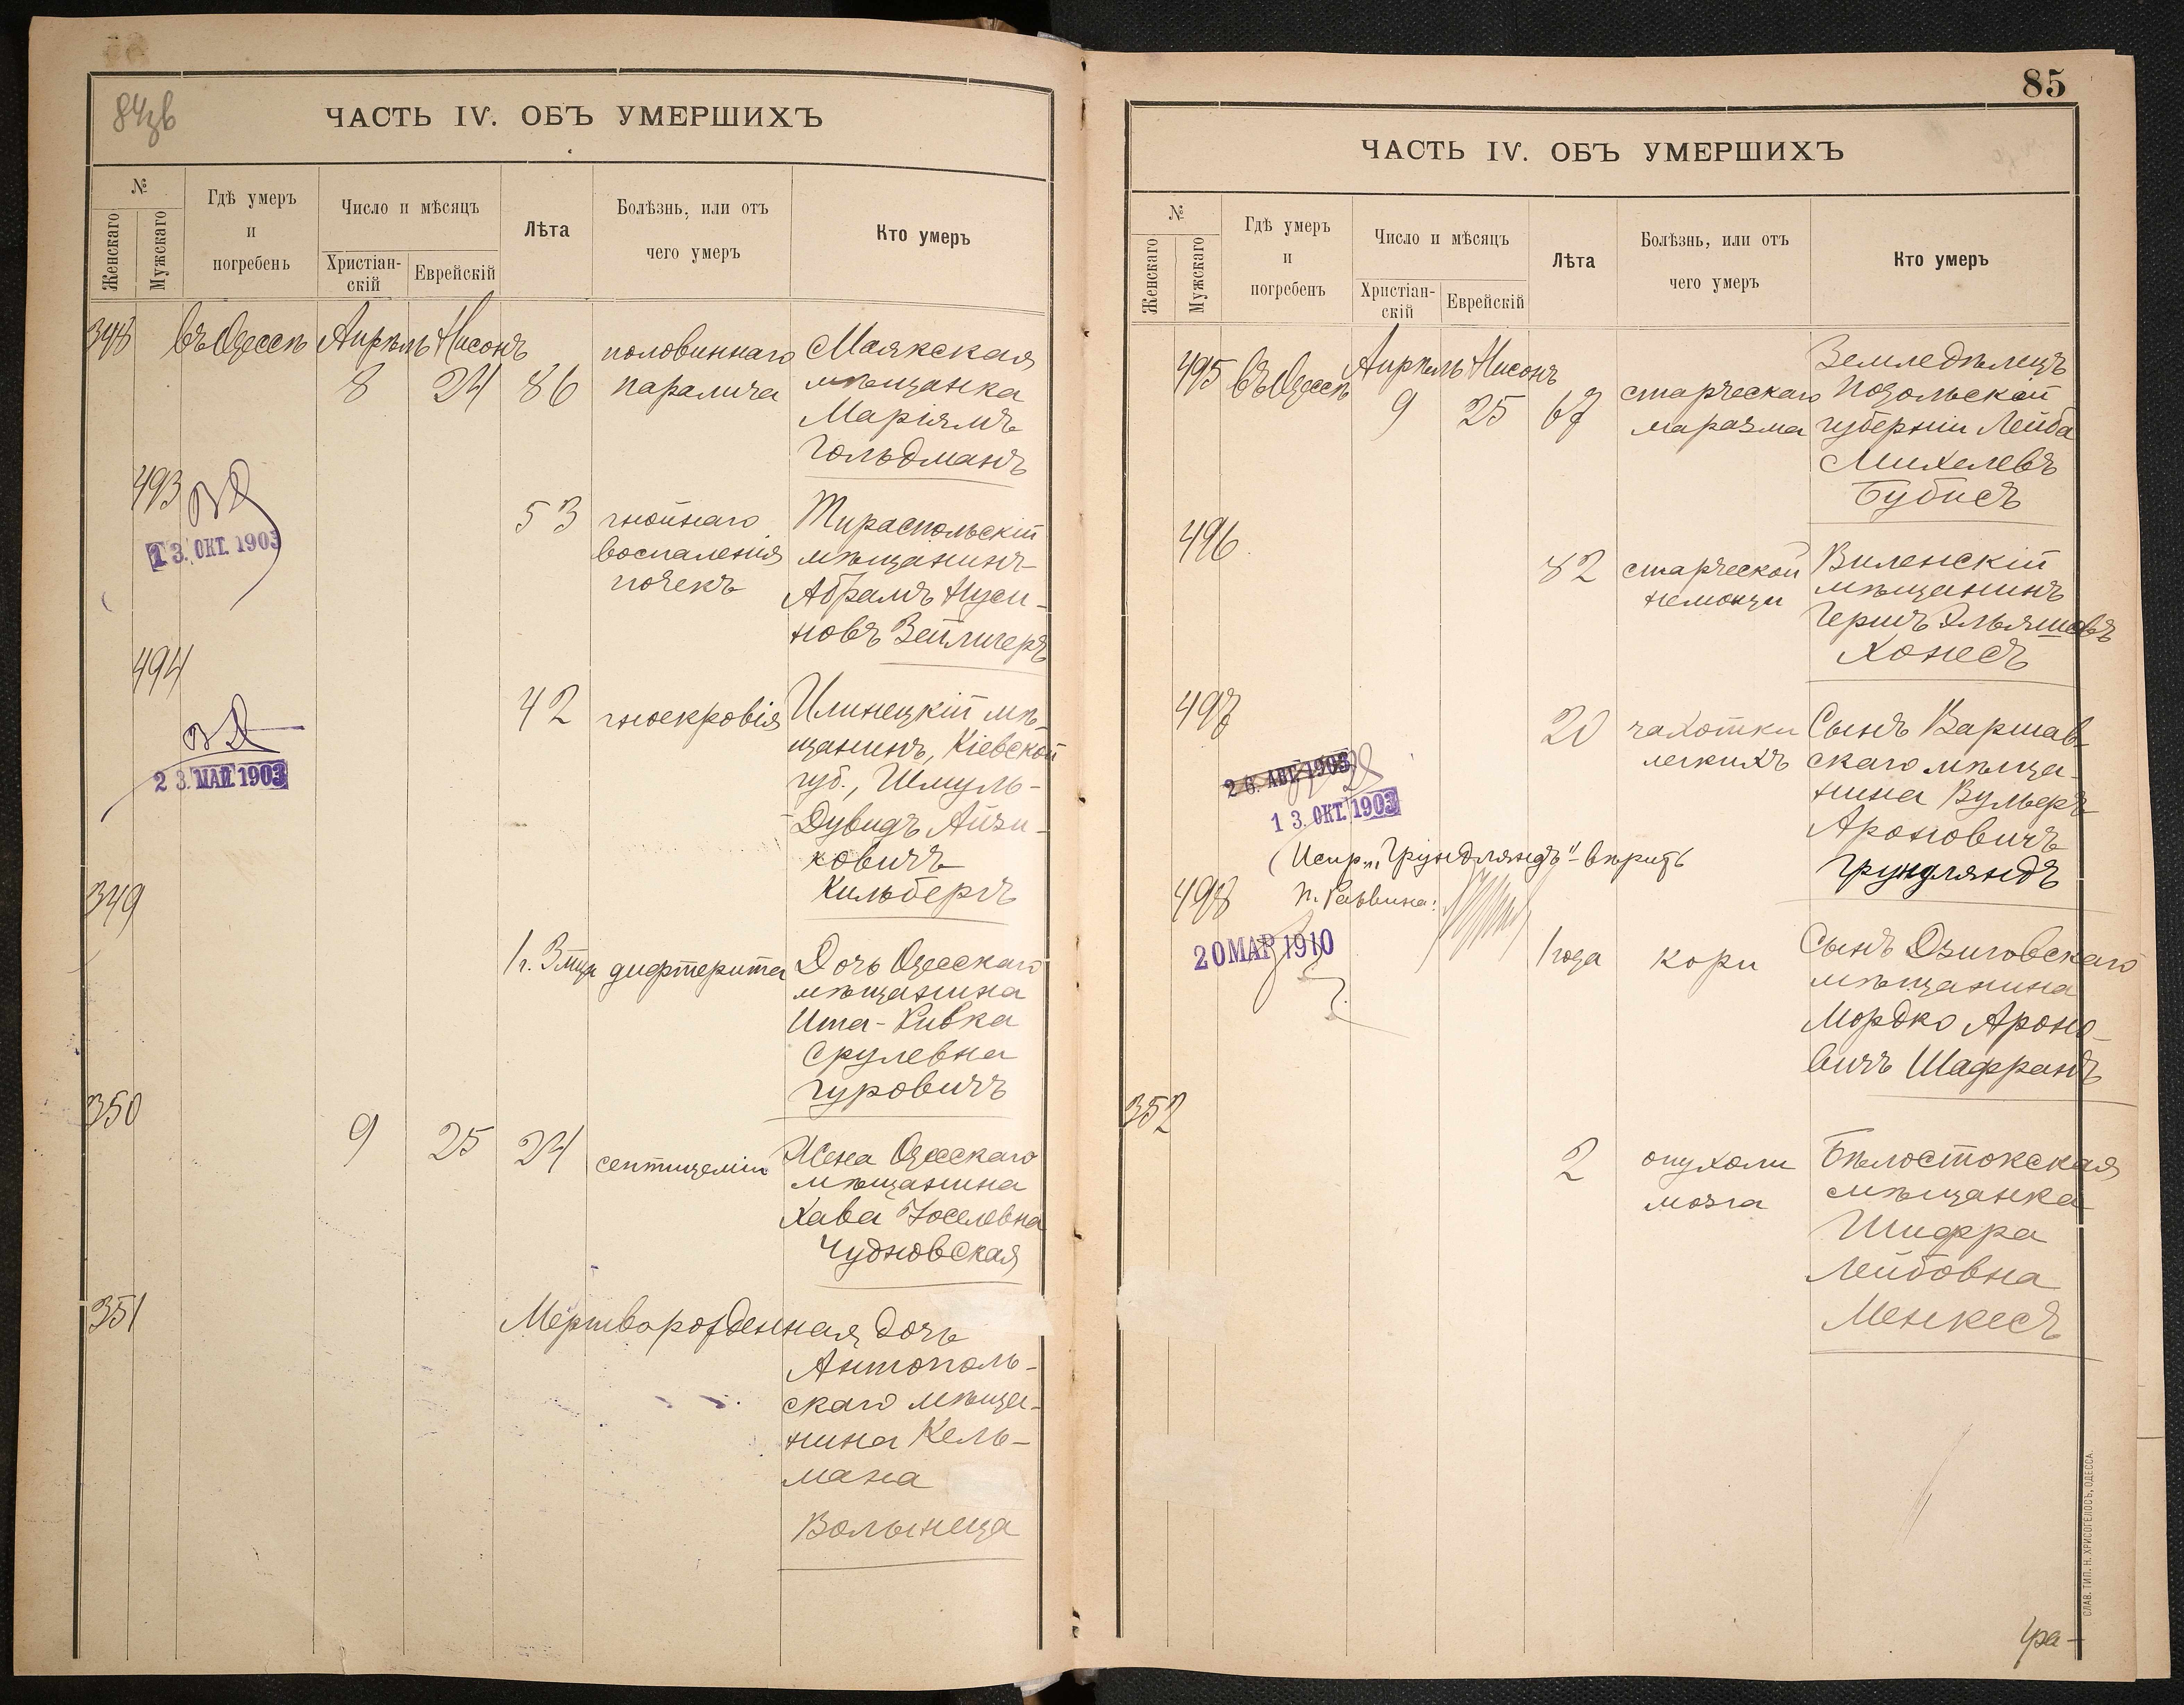 84зв
ЧАСТЬ IV. ОБЪ УМЕРШИХЪ
№
Женскаго
Мужскаго
Гдѣ умеръ
и
погребенъ
Число и мѣсяцъ
Христіан-
скій
Еврейскій
Лѣта
Болѣзнь, или отъ
чего умеръ
Кто умеръ
348 въ Одессѣ Апрѣль Нисонъ половиннаго Маякская
8 24 86 паралича мѣщанка
Маріямъ
Гольдманъ
493
53 гнойнаго Тираспольскій
13. ОКТ. 1903 воспаленія мѣщанинъ
почекъ Абрамъ Нуси-
новъ Зейлигеръ
494
42 гноекровія Илинецкій мѣ-
щанинъ, Кіевской
23. МАЙ. 1903 губ., Шмуль-
Дувидъ Айзи-
ковичъ
Кильбергъ
349
1 г. 3 мца дифтерита Дочь Одесскаго
мѣщанина
Ита-Ривка
Срулевна
Гуровичъ
350
9 25 24 септицеміи Жена Одесскаго
мѣщанина
Хава Іоселевна
Чудновская
351
Мертворожденная дочь
Антополь-
скаго мѣща-
нина Кель-
мана
Волынеца
85
ЧАСТЬ IV. ОБЪ УМЕРШИХЪ
№
Женскаго
Мужскаго
Гдѣ умеръ
и
погребенъ
Число и мѣсяцъ
Христіан-
скій
Еврейскій
Лѣта
Болѣзнь, или отъ
чего умеръ
Кто умеръ
495 въ Одессѣ Апрѣль Нисонъ Земледѣлецъ
9 25 67 старческаго Подольской
маразма губерніи Лейба
Михелевъ
Бубисъ
496
82 старческой Виленскій
немощи мѣщанинъ
Гершъ Эльяшовъ
Хонесъ
497
20 чахотки Сынъ Варшав-
легкихъ скаго мѣща-
26. АВГ. 1903 нина Вульфъ
13. ОКТ. 1903 Ароновичъ
(Испр. "Грундляндъ" - вѣрить Грундляндъ
498
20 МАР 1910 1 года кори Сынъ Дзиговскаго
мѣщанина
Мордко Ароно-
вичъ Шафранъ
352
2 опухоли Бѣлостокская
мозга мѣщанка
Шифра
Лейбовна
Менкесъ
СЛАВ. ТИП. Н. ХРИСОГЕЛОСЪ, ОДЕССА.